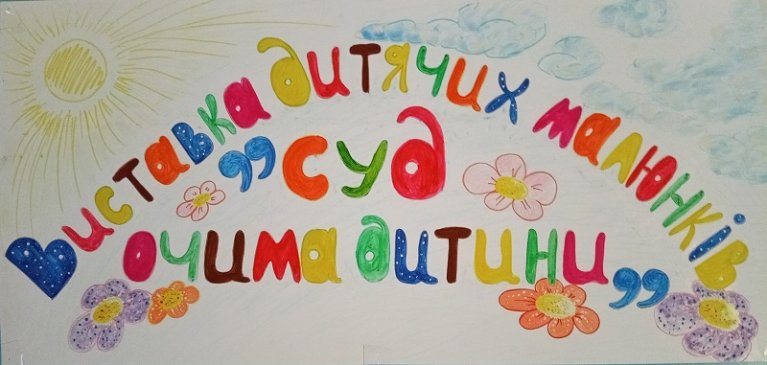 Виставка дитячих малюнків
„суд
очима дитини„